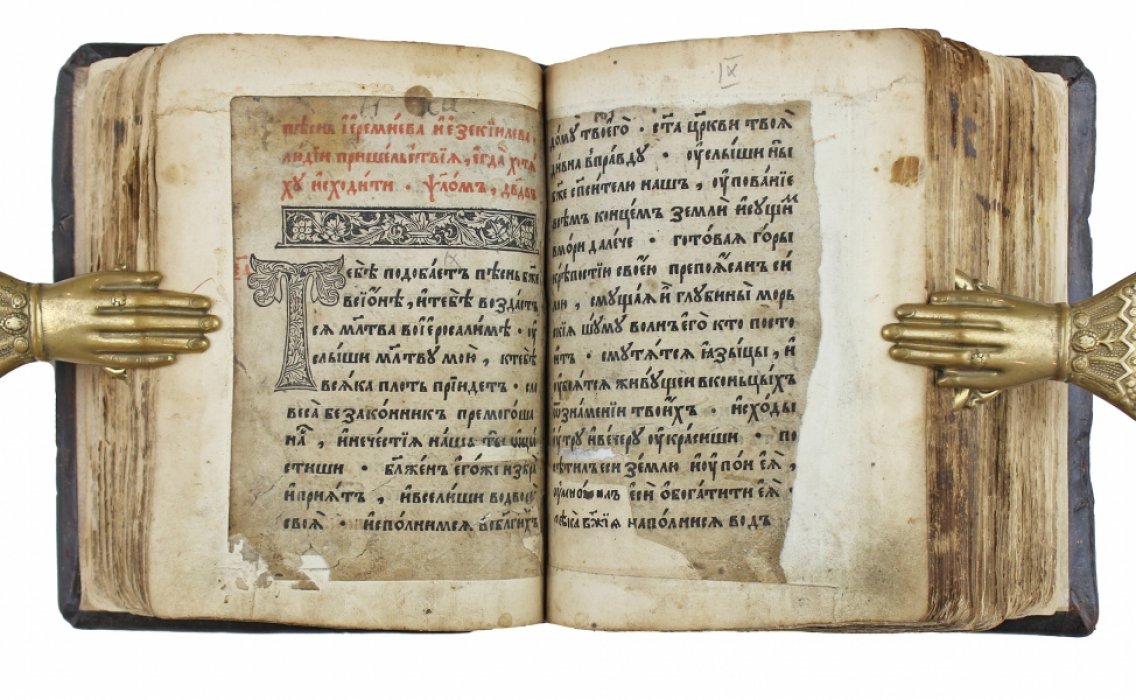 пѣснь і҆еремиева и҆ е҆зекїилева
людїи пришельствїѧ, є҆гда хотѧ
хꙋ и҆сходити · ѱло́мъ, дв҃двъ
Тебѣ подобаетъ пѣснь бж҃е
в сїѡ҆нѣ, и҆ тебѣ воздаст
сѧ мл҃тва во і҆еросалимѣ · ᲂу҆
слыши мл҃твꙋ мою̀, к тебѣ
всѧка плоть прїидетъ · сло
веса беззаконникъ премогоша
на́с, и҆ нечестїѧ на́ша ты̀ ѡ҆цѣ
стиши · бл҃женъ є҆гоже и҆збра
и҆ прїѧтъ, и҆ вселиши во дворѣ
своѧ̀ · и҆сполнимсѧ во бл҃гихъ
IX
до́мꙋ твоего̀ · ст҃а цр҃кви твоѧ̀
ди́вна в пра́вдꙋ · ᲂу҆слы́ши ны̀
бж҃е сп҃сителю на́шъ, ᲂу҆пова́нїе
всѣ́мъ конце́мъ землѝ и҆ сꙋ́щимъ
в мо́ри дале́че · гото́ваѧ го́ры
крѣ́постїю свое́ю препоѧ́санъ си́
лою, смꙋща́ѧ и҆ глꙋбины̀ морь
скїѧ шꙋ́мꙋ во́лнъ є҆го̀ кто посто
и́тъ · смѧтꙋ́тсѧ ꙗ҆зы́цы, и҆
ᲂу҆боѧ́тсѧ живꙋ́щеи в конь́цыхъ
ѿ зна́менїи твои́хъ · и҆схо́ды
ᲂу҆́трꙋ и҆ ве́черꙋ ᲂу҆кра́сиши · по
сѣти́лъ є҆сѝ зе́млю и҆ ᲂу҆по́и ю҆̀,
ᲂу҆мно́жилъ є҆сѝ ѡ҆богати́ти ю҆̀ ·
рѣка̀ бж҃їѧ напо́лнисѧ во́дъ